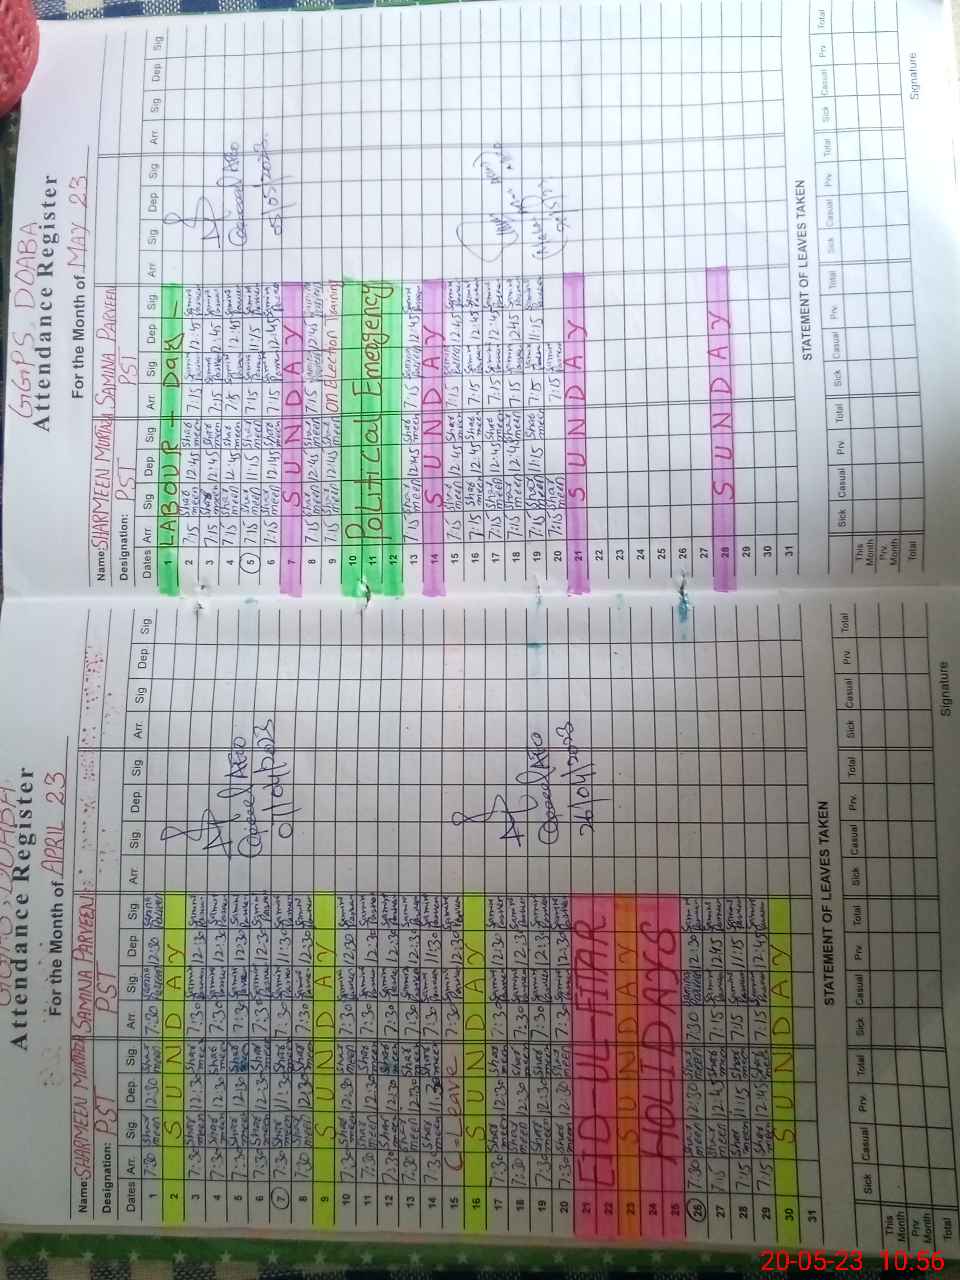 GGPS, DOABA
Attendance Register
For the Month of APRIL 23
Name: SHARMEEN MURTAZA SAMINA PARVEEN
Designation: PST PST
Dates Arr. Sig Dep. Sig Arr. Sig Dep Sig Arr. Sig Dep Sig Arr. Sig Dep Sig
1 7:30 Shar meen 12:30 Shar meen 7:30 Samina Parveen 12:30 Samina Parveen
2 SUNDAY
3 7:30 Shar meen 12:30 Shar meen 7:30 Samina Parveen 12:30 Samina Parveen
4 7:30 Shar meen 12:30 Shar meen 7:30 Samina Parveen 12:30 Samina Parveen
5 7:30 Shar meen 12:30 Shar meen 7:30 Samina Parveen 12:30 Samina Parveen
6 7:30 Shar meen 12:30 Shar meen 7:30 Samina Parveen 12:30 Samina Parveen
7 7:30 Shar meen 11:30 Shar meen 7:30 Samina Parveen 11:30 Samina Parveen
8 7:30 Shar meen 12:30 Shar meen 7:30 Samina Parveen 12:30 Samina Parveen
9 SUNDAY
10 7:30 Shar meen 12:30 Shar meen 7:30 Samina Parveen 12:30 Samina Parveen
11 7:30 Shar meen 12:30 Shar meen 7:30 Samina Parveen 12:30 Samina Parveen
12 7:30 Shar meen 12:30 Shar meen 7:30 Samina Parveen 12:30 Samina Parveen
13 7:30 Shar meen 12:30 Shar meen 7:30 Samina Parveen 12:30 Samina Parveen
14 7:30 Shar meen 11:30 Shar meen 7:30 Samina Parveen 11:30 Samina Parveen
15 C-Leave 7:30 Samina Parveen 12:30 Samina Parveen
16 SUNDAY
17 7:30 Shar meen 12:30 Shar meen 7:30 Samina Parveen 12:30 Samina Parveen
18 7:30 Shar meen 12:30 Shar meen 7:30 Samina Parveen 12:30 Samina Parveen
19 7:30 Shar meen 12:30 Shar meen 7:30 Samina Parveen 12:30 Samina Parveen
20 7:30 Shar meen 12:30 Shar meen 7:30 Samina Parveen 12:30 Samina Parveen
21 EID-UL-FITAR
22
23 SUNDAY
24 HOLIDAYS
25
26 7:30 Shar meen 12:30 Shar meen 7:30 Samina Parveen 12:30 Samina Parveen
27 7:15 Shar meen 12:45 Shar meen 7:15 Samina Parveen 12:45 Samina Parveen
28 7:15 Shar meen 11:15 Shar meen 7:15 Samina Parveen 11:15 Samina Parveen
29 7:15 Shar meen 12:45 Shar meen 7:15 Samina Parveen 12:45 Samina Parveen
30 SUNDAY
31
AEO
07/04/2023
AEO
26/04/2023
STATEMENT OF LEAVES TAKEN
Sick Casual Prv. Total Sick Casual Prv Total Sick Casual Prv. Total Sick Casual Prv. Total
This Month
Prv. Month
Total
Signature
GGPS, DOABA
Attendance Register
For the Month of MAY 23
Name: SHARMEEN MURTAZA SAMINA PARVEEN
Designation: PST PST
Dates Arr. Sig Dep Sig Arr. Sig Dep Sig Arr. Sig Dep Sig Arr. Sig Dep Sig
1 LABOUR - Day -
2 7:15 Shar meen 12:45 Shar meen 7:15 Samina Parveen 12:45 Samina Parveen
3 7:15 Shar meen 12:45 Shar meen 7:15 Samina Parveen 12:45 Samina Parveen
4 7:15 Shar meen 12:45 Shar meen 7:15 Samina Parveen 12:45 Samina Parveen
5 7:15 Shar meen 11:15 Shar meen 7:15 Samina Parveen 11:15 Samina Parveen
6 7:15 Shar meen 12:45 Shar meen 7:15 Samina Parveen 12:45 Samina Parveen
7 SUNDAY
8 7:15 Shar meen 12:45 Shar meen 7:15 Samina Parveen 12:45 Samina Parveen
9 7:15 Shar meen 12:45 Shar meen On Election Training
10
11 Political Emergency
12
13 7:15 Shar meen 12:45 Shar meen 7:15 Samina Parveen 12:45 Samina Parveen
14 SUNDAY
15 7:15 Shar meen 12:45 Shar meen 7:15 Samina Parveen 12:45 Samina Parveen
16 7:15 Shar meen 12:45 Shar meen 7:15 Samina Parveen 12:45 Samina Parveen
17 7:15 Shar meen 12:45 Shar meen 7:15 Samina Parveen 12:45 Samina Parveen
18 7:15 Shar meen 12:45 Shar meen 7:15 Samina Parveen 12:45 Samina Parveen
19 7:15 Shar meen 11:15 Shar meen 7:15 Samina Parveen 11:15 Samina Parveen
20 7:15 Shar meen 7:15 Samina Parveen
21 SUNDAY
22
23
24
25
26
27
28 SUNDAY
29
30
31
AEO
05/05/2023
STATEMENT OF LEAVES TAKEN
Sick Casual Prv. Total Sick Casual Prv Total Sick Casual Prv Total Sick Casual Prv Total
This Month
Prv. Month
Total
Signature
20-05-23 10:56